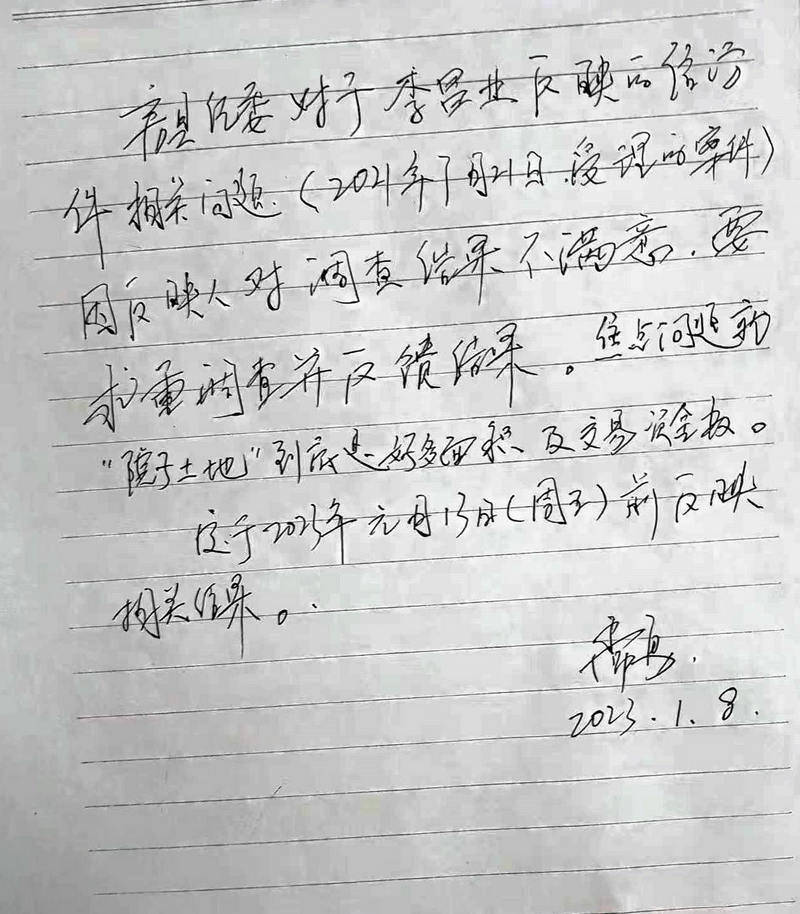 县纪委对于李昌业反映的信访
件相关问题(2021年7月21日受理的案件)
因反映人对调查结果不满意,要
求重调查并反馈结果。焦点问题
"院子土地"到底是好多面积及交易资金数。
定于2023年元月13日(周五)前反映
相关结果。
2023.1.8.